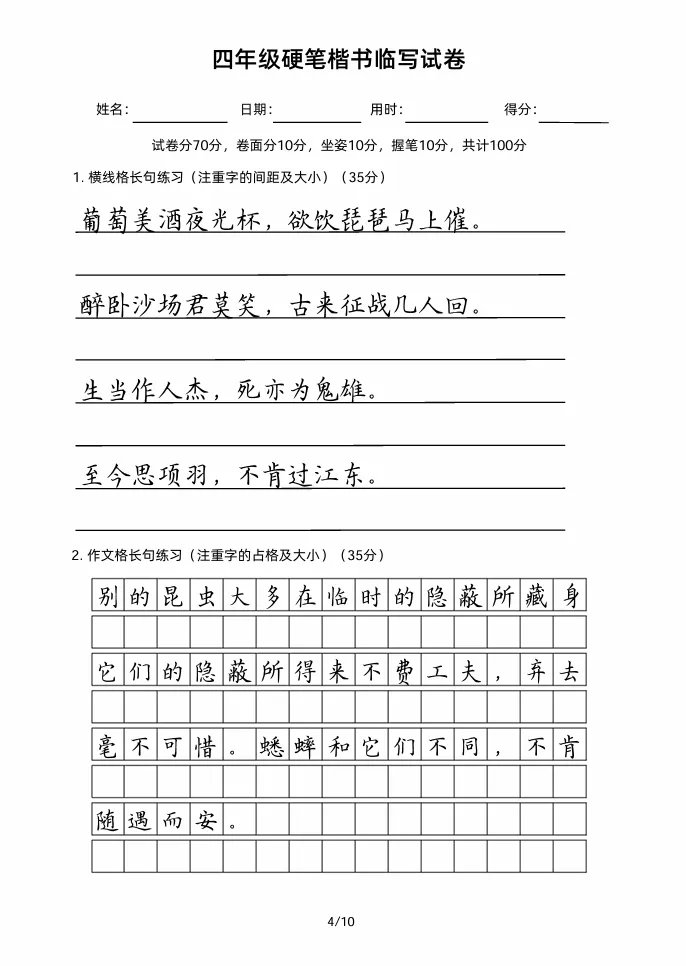 四年级硬笔楷书临写试卷
姓名: 日期: 用时: 得分:
试卷分70分，卷面分10分，坐姿10分，握笔10分，共计100分
1. 横线格长句练习（注重字的间距及大小）（35分）
葡萄美酒夜光杯，欲饮琵琶马上催。
醉卧沙场君莫笑，古来征战几人回。
生当作人杰，死亦为鬼雄。
至今思项羽，不肯过江东。
2. 作文格长句练习（注重字的占格及大小）（35分）
别的昆虫大多在临时的隐蔽所藏身
它们的隐蔽所得来不费工夫，弃去
毫不可惜。蟋蟀和它们不同，不肯
随遇而安。
4/10